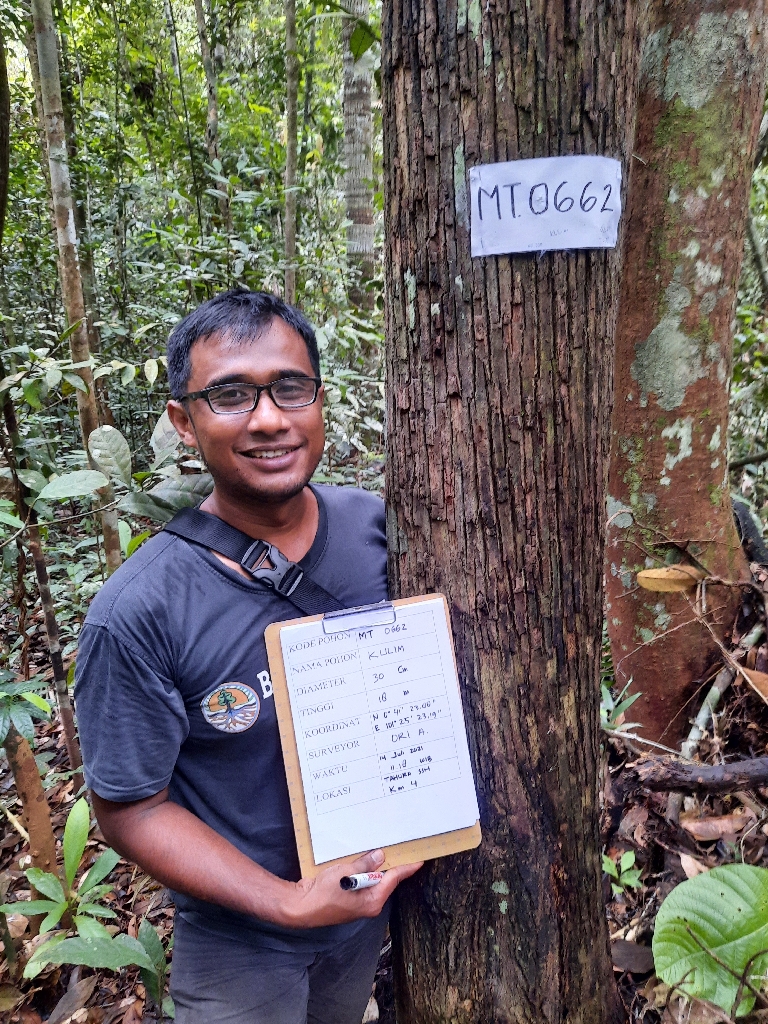 MT.0662
KODE POHON MT 0662
NAMA POHON KULIM
DIAMETER 30 Cm
TINGGI 18 m
KOORDINAT N 0° 41' 23.06"
E 101° 25' 23.19"
SURVEYOR ORI A.
WAKTU 14 Juli 2021
11.18 WIB
LOKASI TAHURA SSH
Km 4
B